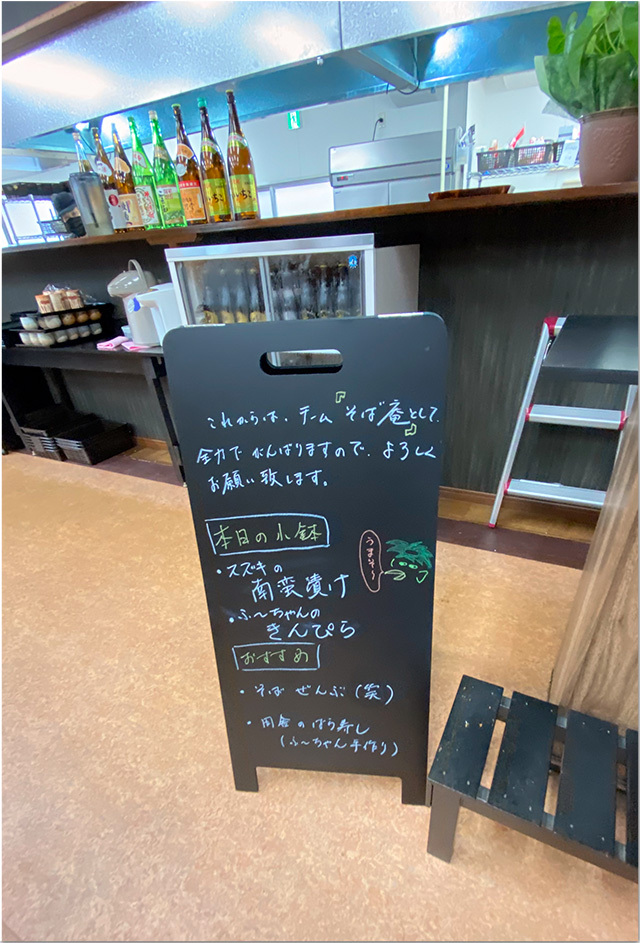 これからは、チーム『そば庵』として、
全力でがんばりますので、よろしく
お願い致します。
本日の小鉢
・スズキの
南蛮漬け
うまそ〜
・ふ〜ちゃんの
きんぴら
おすすめ
・そば ぜんぶ(笑)
・田舎のばら寿し
(ふ〜ちゃん手作り)